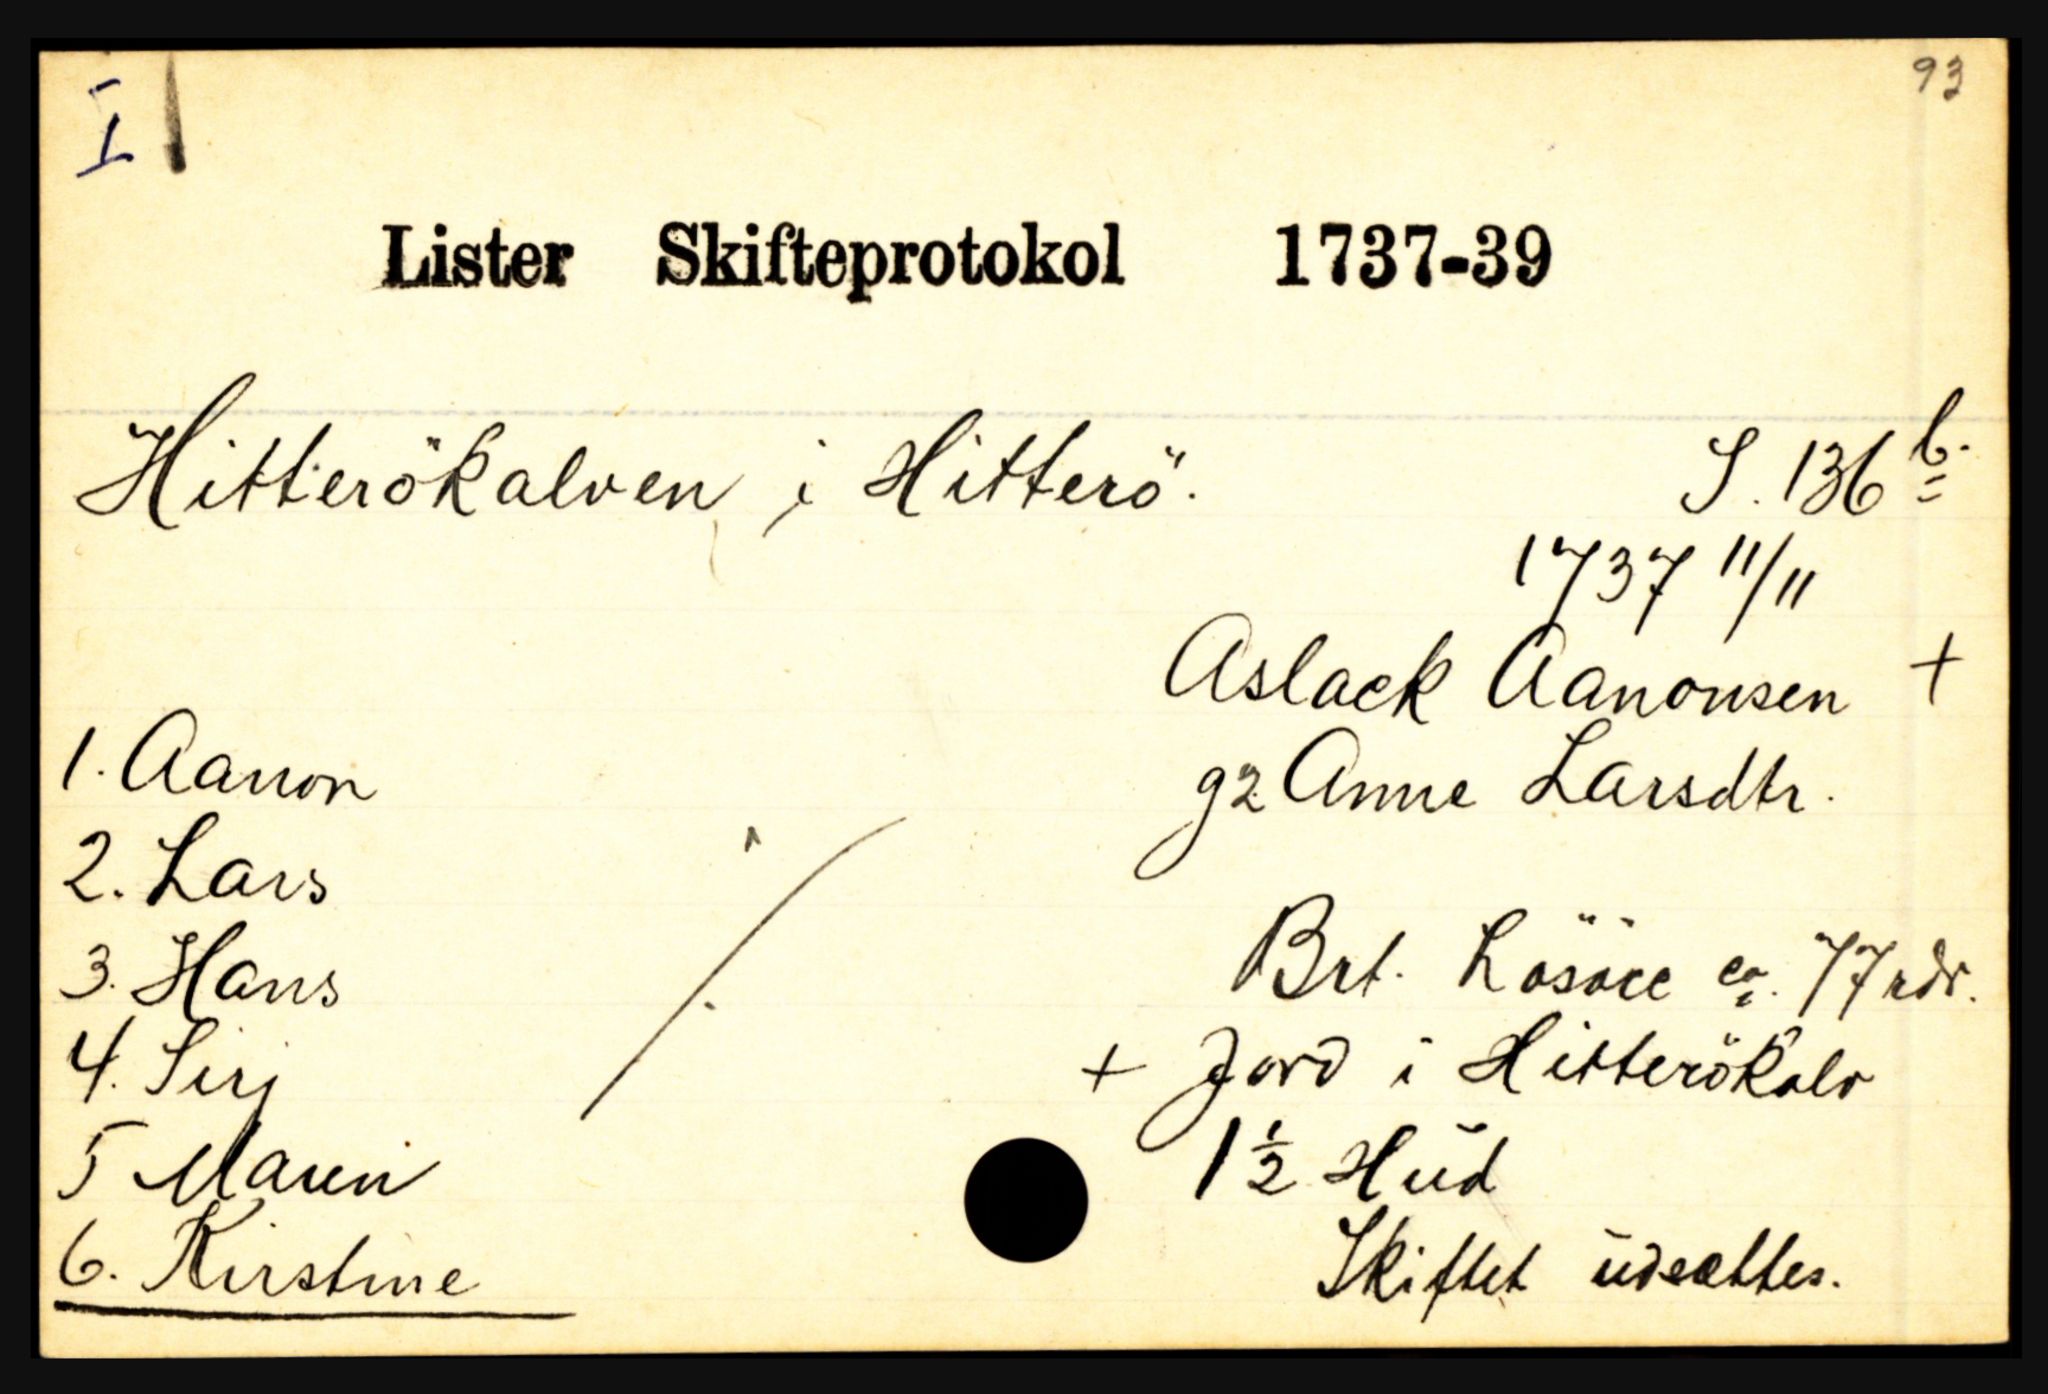 I
93
Lister Skifteprotokol 1737-39
Hitterökalven i Hitterö.
S. 136 b.
1737 11/11
Aslack Aanonsen +
g2 Anne Larsdtr.
1. Aanon
2. Lars
3. Hans
4. Sirj
5 Maren
6. Kirstine
Brt. Lösöre ca. 77 rdr.
+ Jord i Hitterökalv
1 1/2 Hud
Skiftet udsættes.